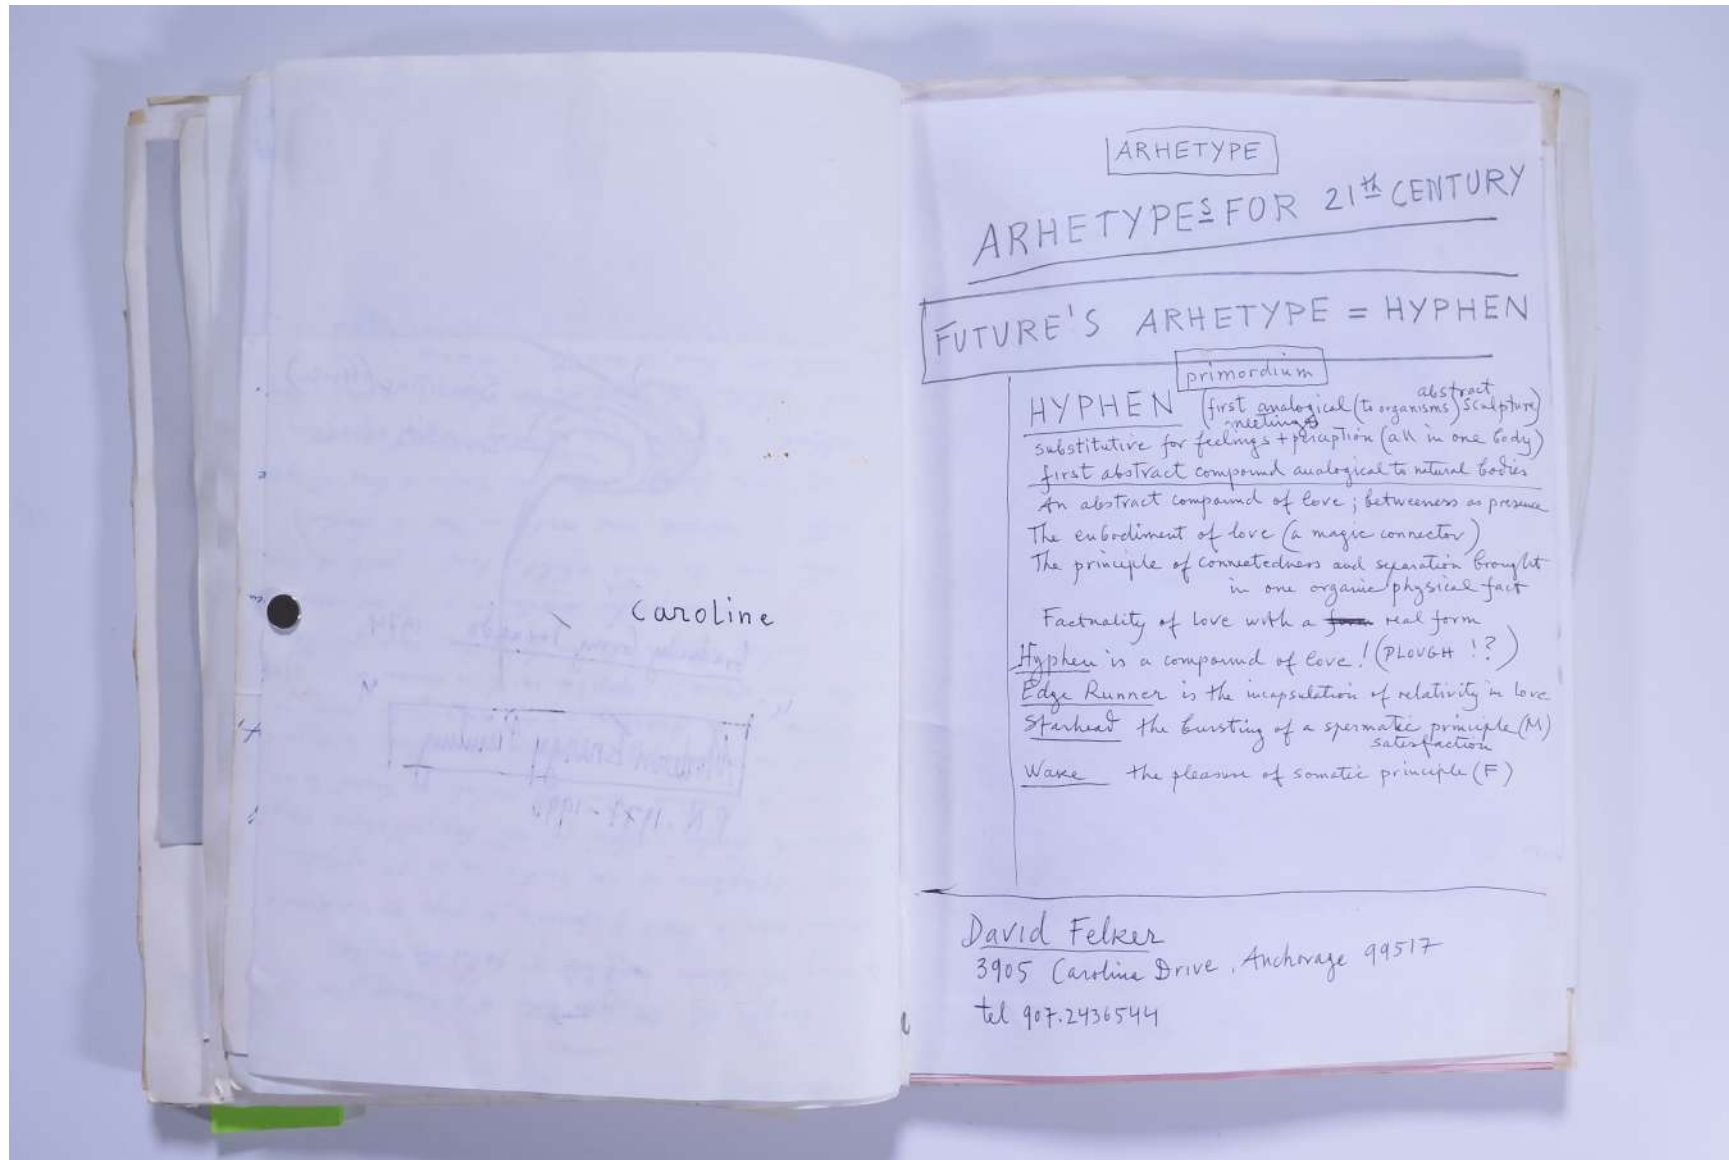 Caroline
ARHETYPE
ARHETYPES FOR 21th CENTURY
FUTURE'S ARHETYPE = HYPHEN
primordium
HYPHEN (first analogical (to organisms) abstract sculpture)
meeting
substitutive for feelings + perception (all in one body)
first abstract compound analogical to natural bodies
An abstract compound of love; betweeness as presence
The enbodiment of love (a magic connector)
The principle of connectedness and separation brought
in one organic physical fact
Factuality of love with a form real form
Hyphen is a compound of love! (PLOUGH !?)
Edge Runner is the incapsulation of relativity in love
Starhead the bursting of a spermatic principle (M)
satisfaction
Wave the pleasure of somatic principle (F)
David Felker
3905 Carolina Drive, Anchorage 99517
tel 907.2436544